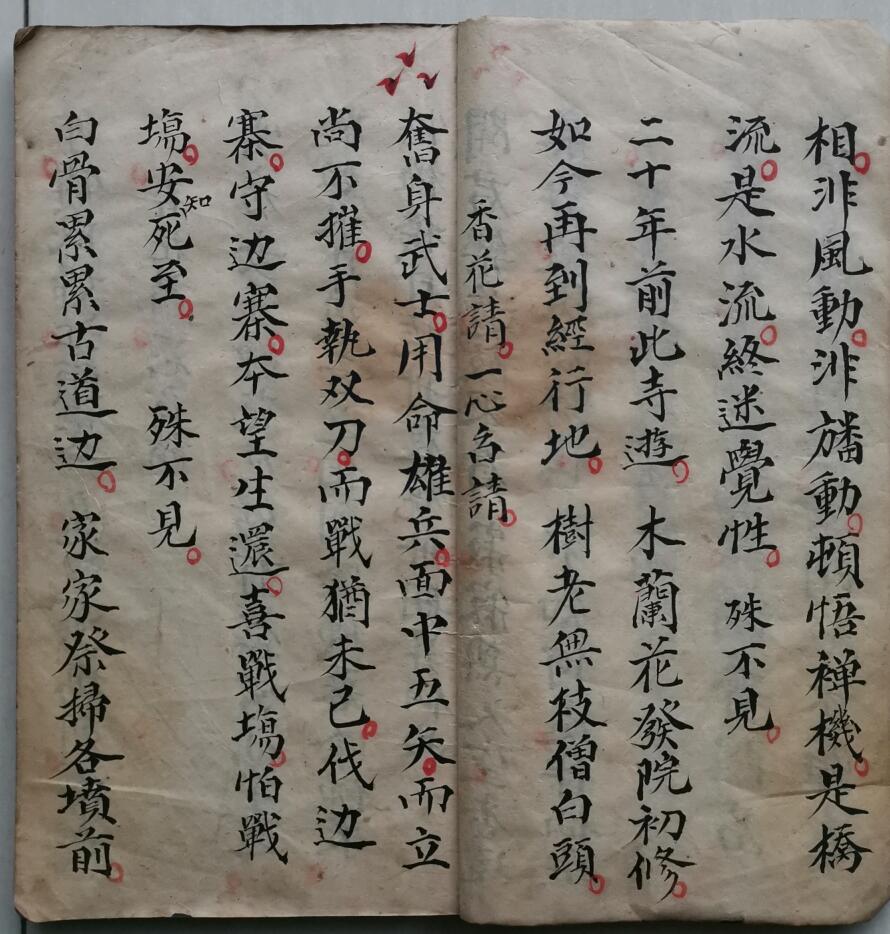 相。非風動。非旛動。頓悟禅機。是橋
流。是水流。終迷覺性。 殊不見。
二十年前此寺遊。 木蘭花發院初修。
如今再到經行地。 樹老無枝僧白頭。
香花請。一心召請。
奮身武士。用命雄兵。面中五矢。而立
尚不摧。手執双刀。而戰猶未已。伐边
寨。守边寨。本望生還。喜戰塲。怕戰
塲。安知死至。 殊不見。
白骨累累古道边。 家家祭掃各墳前。